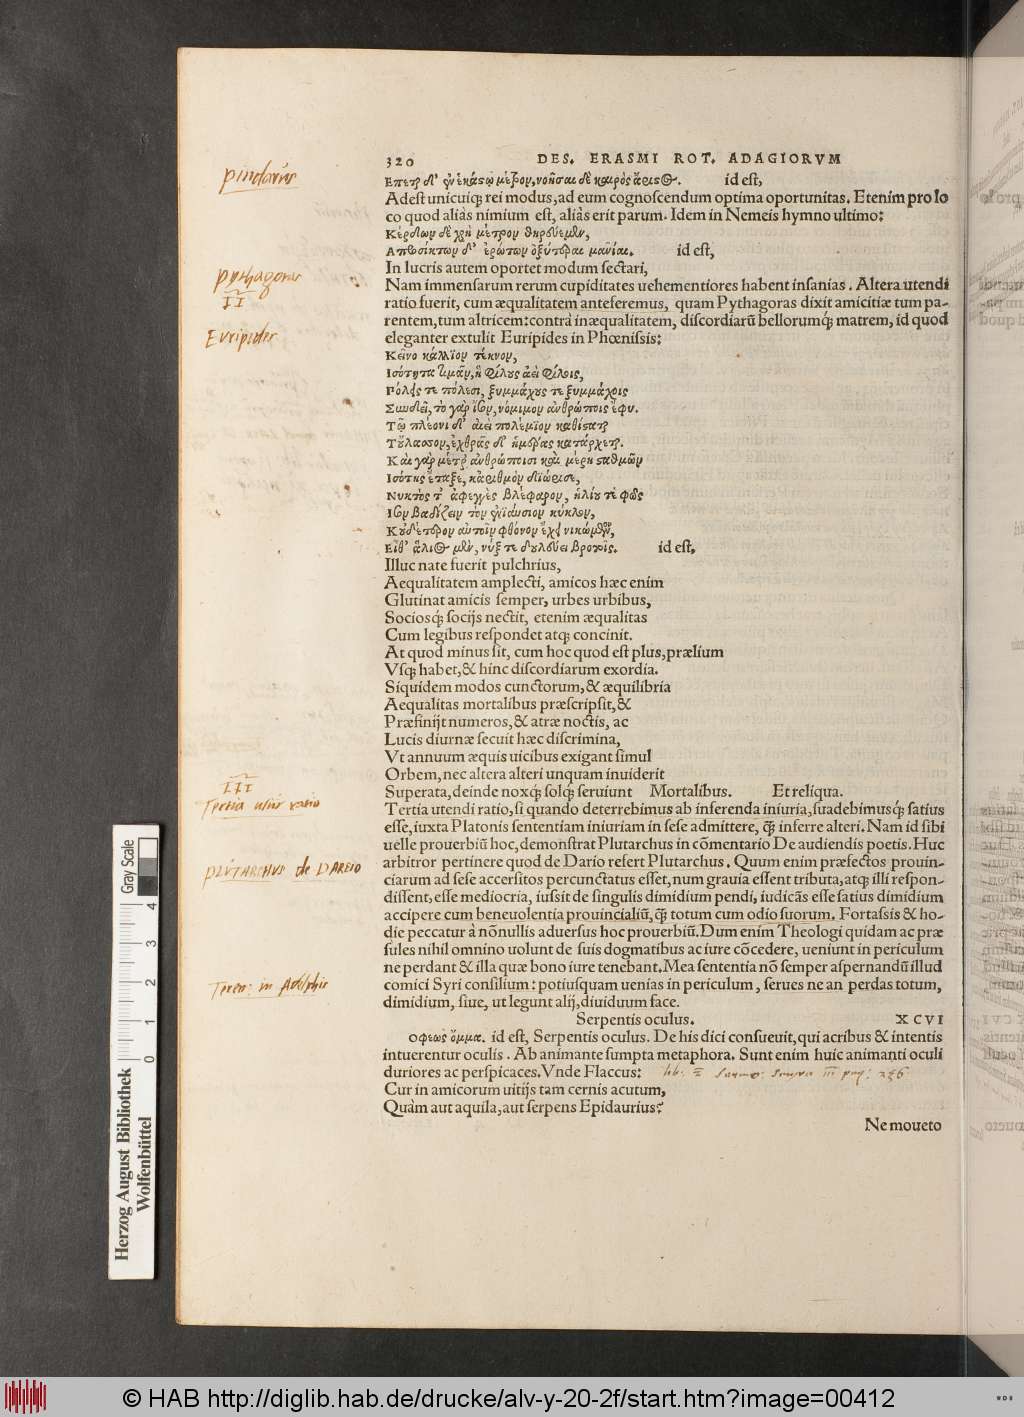 320 DES. ERASMI ROT. ADAGIORVM
pindarus
Επεται δ' ἐν ἑκάστῳ μέτρον, νοῆσαι δὲ καιρὸς ἄριστος. id est,
Adest unicuiq; rei modus, ad eum cognoscendum optima oportunitas. Etenim pro lo
co quod aliàs nimium est, aliàs erit parum. Idem in Nemeis hymno ultimo:
Κέρδεων δὲ χρὴ μέτρον θηρευέμεν,
Απροσίκτων δ' ἐρώτων ὀξύτεραι μανίαι. id est,
In lucris autem oportet modum sectari,
pythagoras
II
Nam immensarum rerum cupiditates uehementiores habent insanias. Altera utendi
ratio fuerit, cum æqualitatem anteferemus, quam Pythagoras dixit amicitiæ tum pa-
rentem, tum altricem: contrà inæqualitatem, discordiarũ bellorumq; matrem, id quod
Euripides
eleganter extulit Euripides in Phœnissis:
Κεῖνο κάλλιον τέκνον,
Ισότητα τιμᾶν, ἣ φίλους ἀεὶ φίλοις,
Πόλεις τε πόλεσι, ξυμμάχους τε ξυμμάχοις
Συνδεῖ, τὸ γὰρ ἴσον, νόμιμον ἀνθρώποις ἔφυ.
Τῷ πλέονι δ' αἰεὶ πολέμιον καθίσταται
Τοὔλασσον, ἐχθρᾶς δ' ἡμέρας κατάρχεται.
Καὶ γὰρ μέτρ' ἀνθρώποισι καὶ μέρη σταθμῶν
Ισότης ἔταξε, κἀριθμὸν διώρισε,
Νυκτὸς τ' ἀφεγγὲς βλέφαρον, ἡλίου τε φῶς
Ισον βαδίζειν τὸν ἐνιαύσιον κύκλον,
Κοὐδέτερον αὐτοῖν φθόνον ἔχει νικώμενον,
Εἶθ' ἅλιος μὲν, νύξ τε δουλεύει βροτοῖς. id est,
Illuc nate fuerit pulchrius,
Aequalitatem amplecti, amicos hæc enim
Glutinat amicis semper, urbes urbibus,
Sociosq; socijs nectit, etenim æqualitas
Cum legibus respondet atq; concinit.
At quod minus sit, cum hoc quod est plus, prælium
Vsq; habet, & hinc discordiarum exordia.
Siquidem modos cunctorum, & æquilibria
Aequalitas mortalibus præscripsit, &
Præfinijt numeros, & atræ noctis, ac
Lucis diurnæ secuit hæc discrimina,
Vt annuum æquis uicibus exigant simul
Orbem, nec altera alteri unquam inuiderit
Superata, deinde noxq; solq; seruiunt Mortalibus. Et reliqua.
III
Tertia utendi ratio
Tertia utendi ratio, si quando deterrebimus ab inferenda iniuria, suadebimusq; satius
esse, iuxta Platonis sententiam iniuriam in sese admittere, q̃; inferre alteri. Nam id sibi
uelle prouerbiũ hoc, demonstrat Plutarchus in cõmentario De audiendis poetis. Huc
PLVTARCHVS de DAREIO
arbitror pertinere quod de Dario refert Plutarchus. Quum enim præfectos prouin-
ciarum ad sese accersitos percunctatus esset, num grauia essent tributa, atq; illi respon-
dissent, esse mediocria, iussit de singulis dimidium pendi, iudicãs esse satius dimidium
accipere cum beneuolentia prouincialiũ, q̃; totum cum odio suorum. Fortassis & ho-
die peccatur à nõnullis aduersus hoc prouerbiũ. Dum enim Theologi quidam ac præ
sules nihil omnino uolunt de suis dogmatibus ac iure cõcedere, ueniunt in periculum
ne perdant & illa quæ bono iure tenebant. Mea sententia nõ semper aspernandũ illud
Teren: in Adelphis
comici Syri consilium: potiusquam uenias in periculum, serues ne an perdas totum,
dimidium, siue, ut legunt alij, diuiduum face.
Serpentis oculus. XCVI
οφεως ὄμμα. id est, Serpentis oculus. De his dici consueuit, qui acribus & intentis
intuerentur oculis. Ab animante sumpta metaphora. Sunt enim huic animanti oculi
duriores ac perspicaces. Vnde Flaccus:
Cur in amicorum uitijs tam cernis acutum,
Quàm aut aquila, aut serpens Epidaurius?
Ne moueto
Gray Scale
0 1 2 3 4
Herzog August Bibliothek
Wolfenbüttel
© HAB http://diglib.hab.de/drucke/alv-y-20-2f/start.htm?image=00412